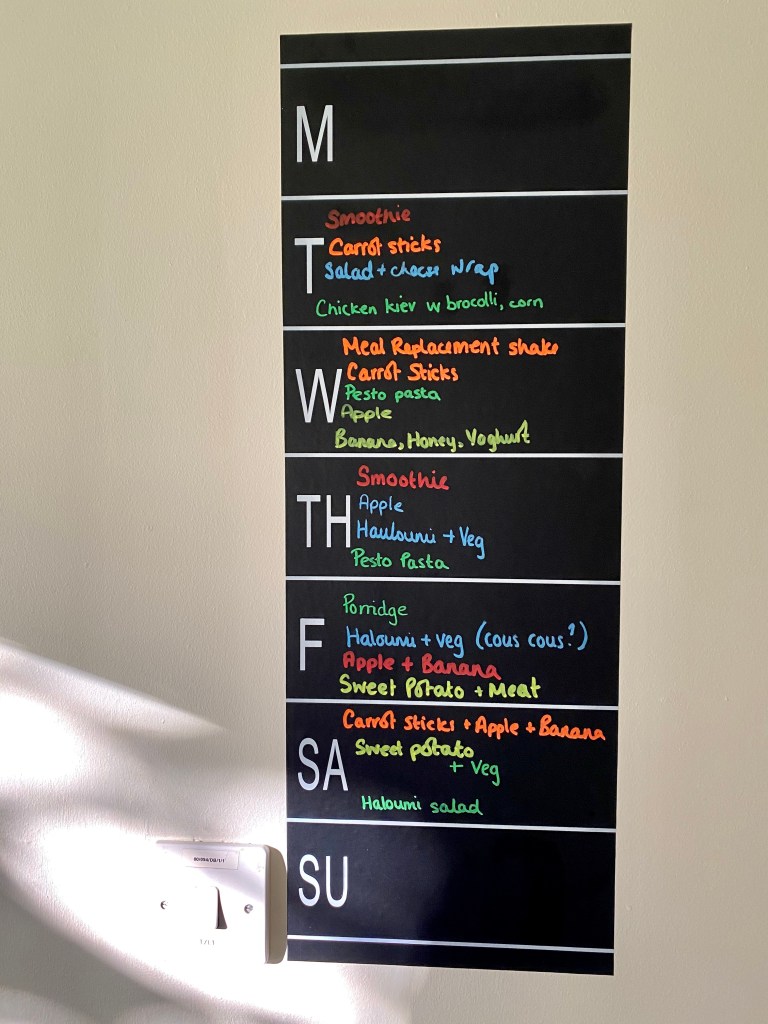 M
Smoothie
T
Carrot sticks
Salad + cheese wrap
Chicken kiev w brocolli, corn
Meal Replacement shake
W
Carrot Sticks
Pesto pasta
Apple
Banana, Honey, Yoghurt
Smoothie
TH
Apple
Hauloumi + Veg
Pesto Pasta
Porridge
F
Haloumi + veg (cous cous?)
Apple + Banana
Sweet Potato + Meat
Carrot sticks + Apple + Banana
SA
Sweet potato
+ Veg
Haloumi salad
SU